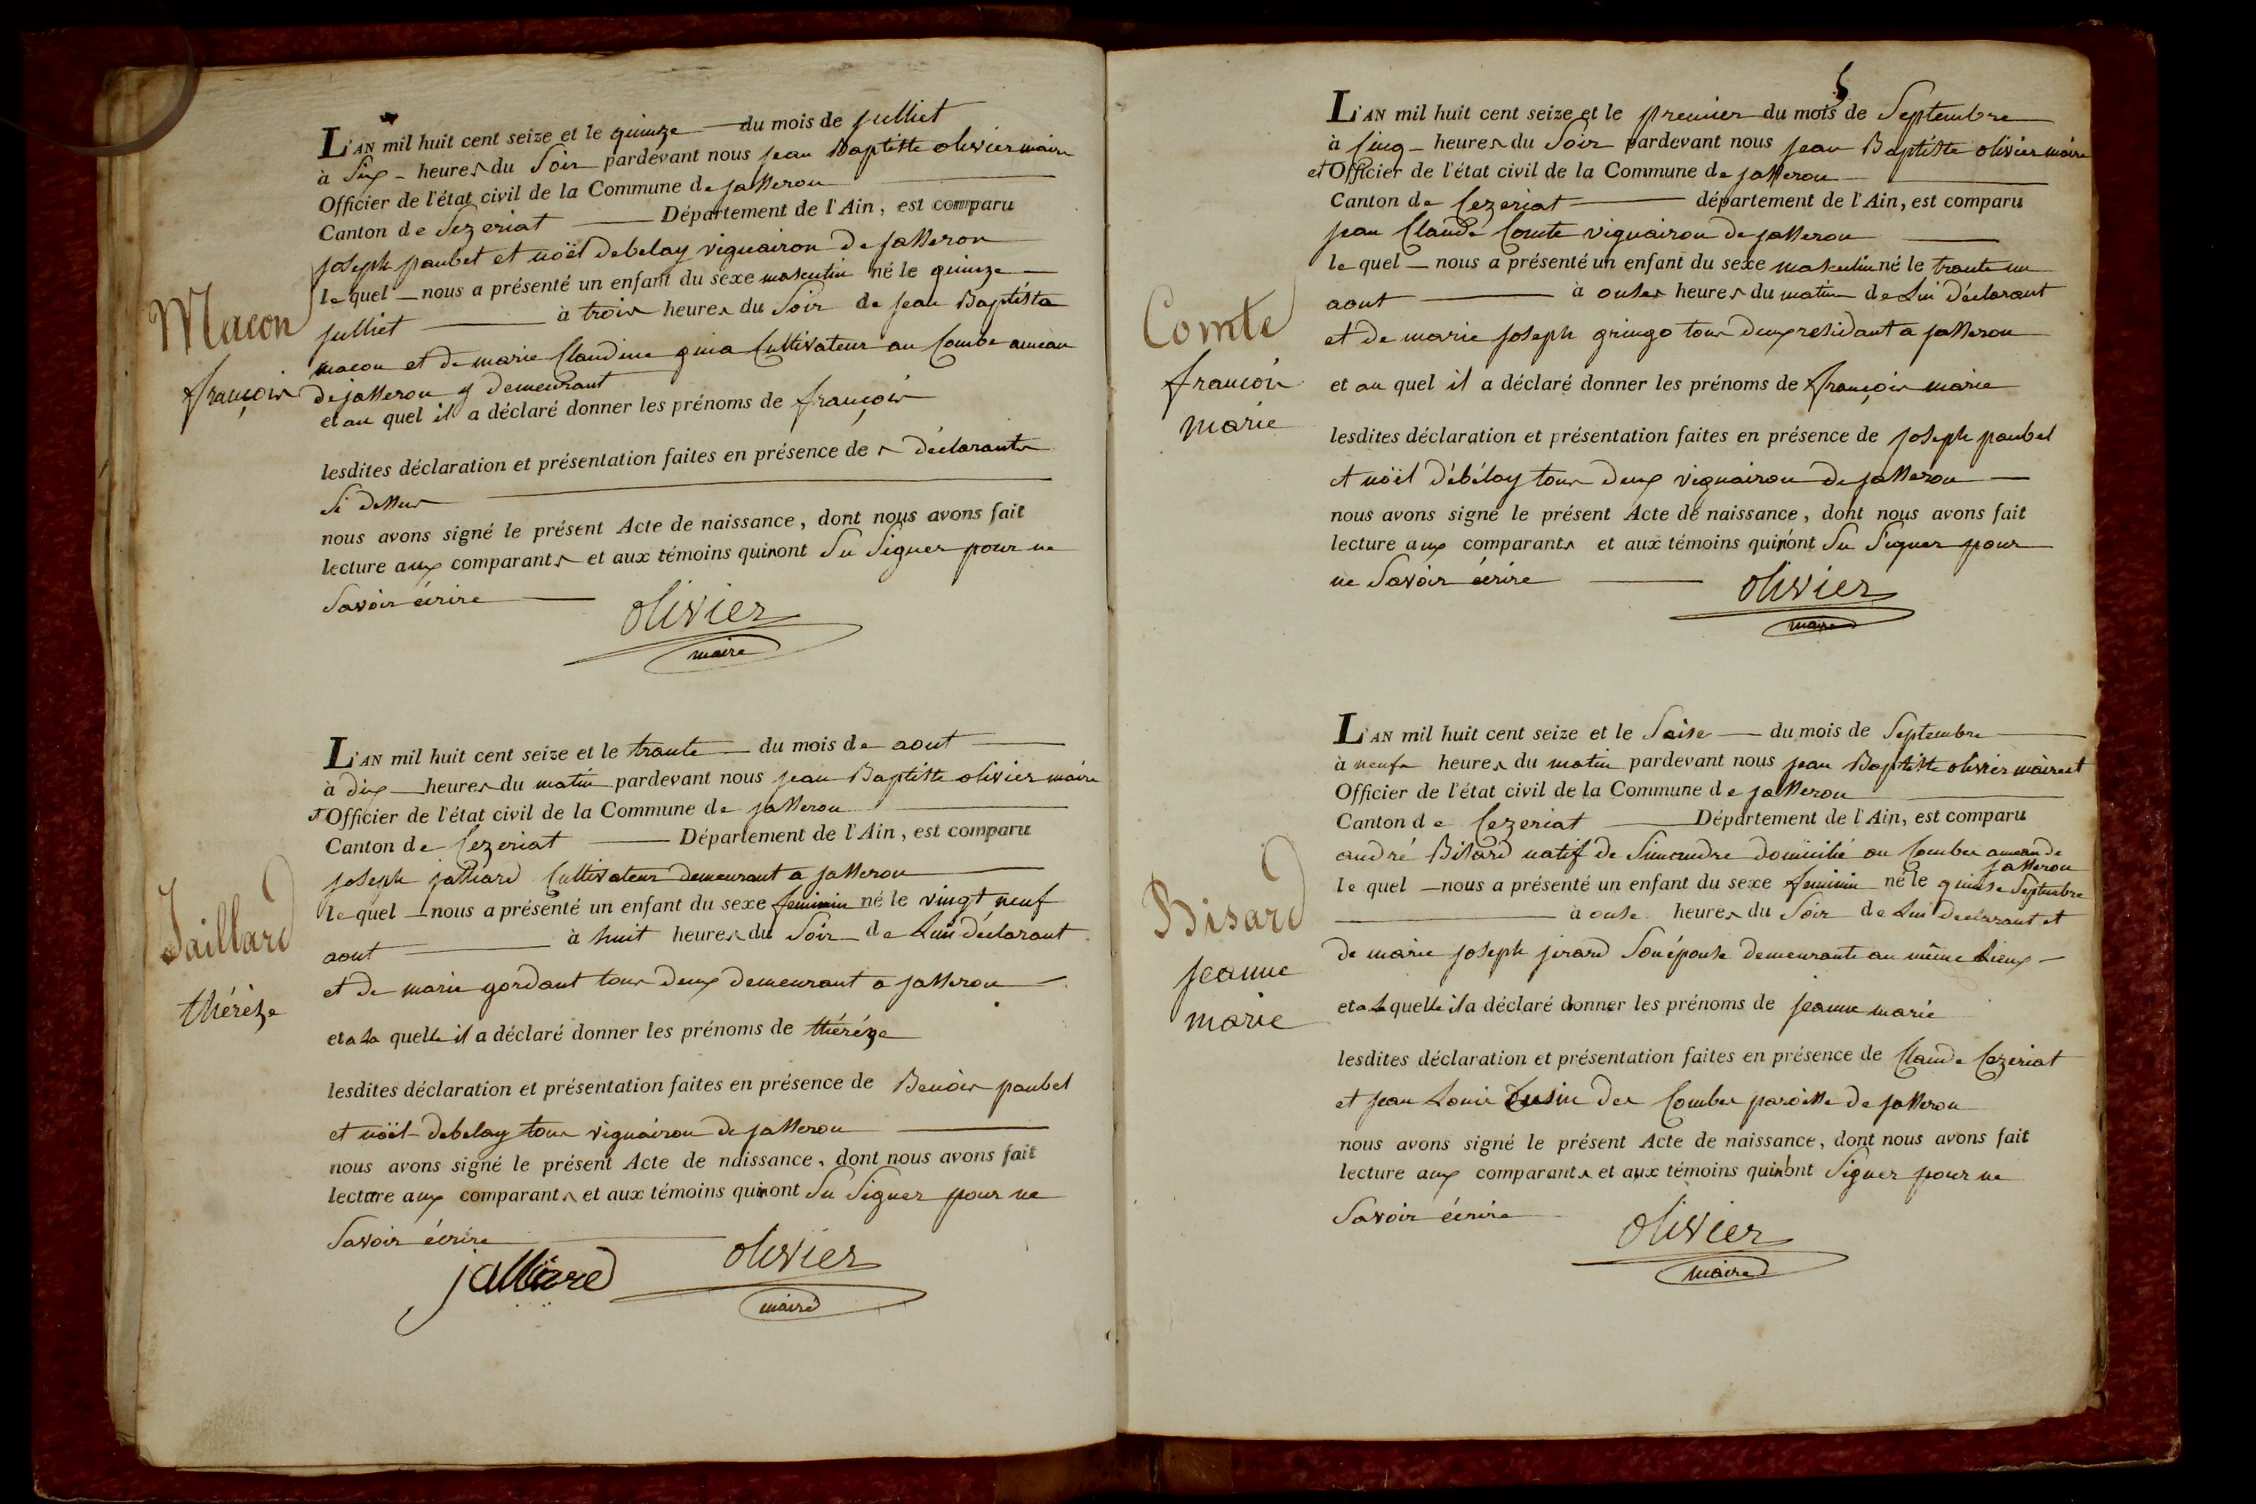 L'AN mil huit cent seize et le quinze du mois de juilliet
à Six heures du Soir pardevant nous jean Baptiste olivier maire
Officier de l'état civil de la Commune de jasseron
Canton de Sezeriat Département de l'Ain, est comparu
joseph paubet et noël debelay viguairon de jasseron
le quel nous a présenté un enfant du sexe masculin né le quinze
julliet à trois heures du Soir de jean Baptista
Macon
macon et de marie Claudine guia Cultivateur au Combe ameau
françois
de jasseron y demeurant
et au quel il a déclaré donner les prénoms de françois
lesdites déclaration et présentation faites en présence des déclarants
Si dessus
nous avons signé le présent Acte de naissance, dont nous avons fait
lecture aux comparants et aux témoins qui nont Su Signer pour ne
Savoir écrire
olivier
maire
L'AN mil huit cent seize et le trante du mois de aout
à dix heures du matin pardevant nous jean Baptiste olivier maire
et Officier de l'état civil de la Commune de jasseron
Canton de Cezeriat Département de l'Ain, est comparu
joseph jalliard Cultivateur demeurant a jasseron
le quel nous a présenté un enfant du sexe feminin né le vingt neuf
Jaillard
aout à huit heures du Soir de Lui déclarant
et de marie gordant tous deux demeurant a jasseron
thérèze
et a La quelle il a déclaré donner les prénoms de théréze
lesdites déclaration et présentation faites en présence de Benoit paubel
et noël debelay tous viguairon de jasseron
nous avons signé le présent Acte de naissance, dont nous avons fait
lecture aux comparants et aux témoins qui nont Su Signer pour ne
Savoir écrire
jalliard olivier
maire
5
L'AN mil huit cent seize et le premier du mois de Septembre
à sinq heures du Soir pardevant nous jean Baptiste olivier maire
et Officier de l'état civil de la Commune de jasseron
Canton de Cezeriat département de l'Ain, est comparu
jean Claude Comte viguairon de jasseron
le quel nous a présenté un enfant du sexe masculin né le trante un
aout à onses heures du matin de Lui déclarant
Comte
et de marie joseph gringo tous deux residant a jasseron
françois
marie
et au quel il a déclaré donner les prénoms de françois marie
lesdites déclaration et présentation faites en présence de joseph paubel
et noël débélay tous deux viguairon de jasseron
nous avons signé le présent Acte de naissance, dont nous avons fait
lecture aux comparants et aux témoins qui nont Su Signer pour
ne Savoir écrire
olivier
maire
L'AN mil huit cent seize et le Saise du mois de Septembre
à neufs heures du matin pardevant nous jean Baptiste olivier maire et
Officier de l'état civil de la Commune de jasseron
Canton de Cezeriat Département de l'Ain, est comparu
andré Bisard natif de Simandre domicilié au Combes ameau de
jasseron
le quel nous a présenté un enfant du sexe feminin né le quinse Septembre
à onse heures du Soir de Lui declarant et
Bisard
de marie joseph jirard Son épouse demeurante au même Lieux
jeanne
marie
et a La quelle il a déclaré donner les prénoms de jeanne marie
lesdites déclaration et présentation faites en présence de Claude Cezeriat
et jean Louis des Combes paroisse de jasseron
nous avons signé le présent Acte de naissance, dont nous avons fait
lecture aux comparants et aux témoins qui nont Signer pour ne
Savoir écrire
olivier
maire